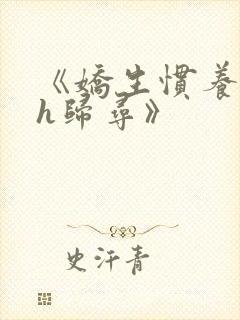 《嬌生慣養
h歸尋》
史汗青